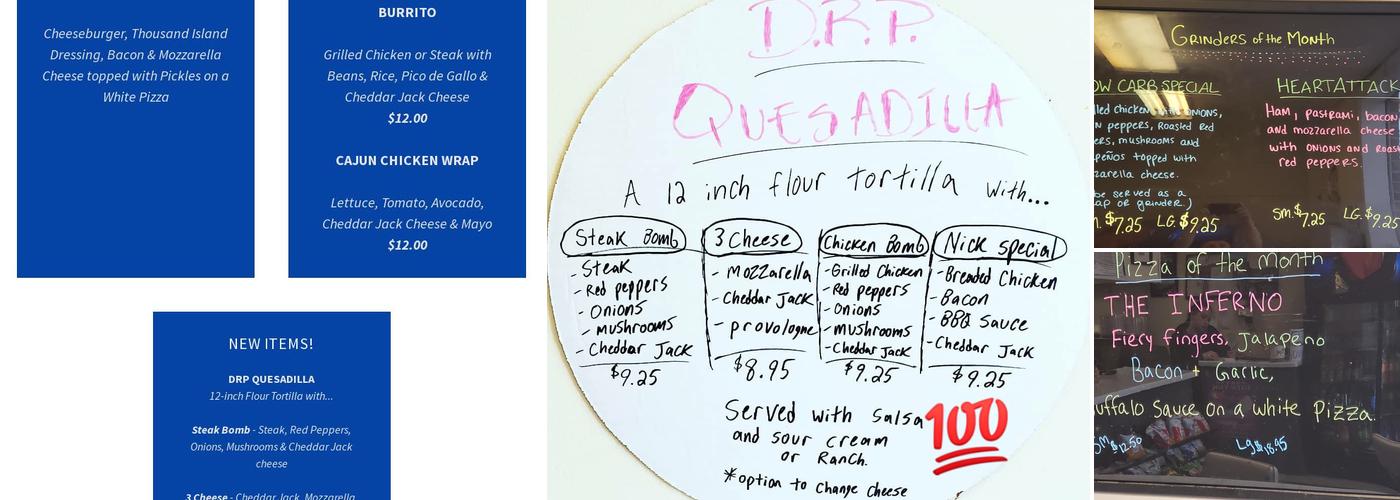 Cheeseburger, Thousand Island
Dressing, Bacon & Mozzarella
Cheese topped with Pickles on a
White Pizza
BURRITO
Grilled Chicken or Steak with
Beans, Rice, Pico de Gallo &
Cheddar Jack Cheese
$12.00
CAJUN CHICKEN WRAP
Lettuce, Tomato, Avocado,
Cheddar Jack Cheese & Mayo
$12.00
NEW ITEMS!
DRP QUESADILLA
12-inch Flour Tortilla with...
Steak Bomb - Steak, Red Peppers,
Onions, Mushrooms & Cheddar Jack
cheese
3 Cheese - Cheddar Jack, Mozzarella
D.R.P.
QUESADILLA
A 12 inch flour tortilla with...
Steak Bomb
- Steak
- Red peppers
- Onions
- mushrooms
- Cheddar Jack
$9.25
3 Cheese
- mozzarella
- Cheddar Jack
- provologne
$8.95
Chicken Bomb
- Grilled Chicken
- Red peppers
- Onions
- mushrooms
- Cheddar Jack
$9.25
Nick special
- Breaded Chicken
- Bacon
- BBQ Sauce
- Cheddar Jack
$9.25
Served with salsa 100
and sour cream
or Ranch.
*option to change cheese
GRINDERS of the MONTH
OW CARB SPECIAL
lled chicken with onions,
n peppers, Roasted Red
ers, mushrooms and
peños topped with
zarella cheese.
be served as a
ap or grinder.)
m. $7.25 LG. $9.25
HEARTATTACK
Ham, pastrami, bacon
and mozzarella cheese
with onions and Roas
red peppers.
Sm. $7.25 LG. $9.25
Pizza of the month
THE INFERNO
Fiery fingers, Jalapeno
Bacon + Garlic,
uffalo Sauce on a white Pizza.
Sm $12.50 Lg $18.95